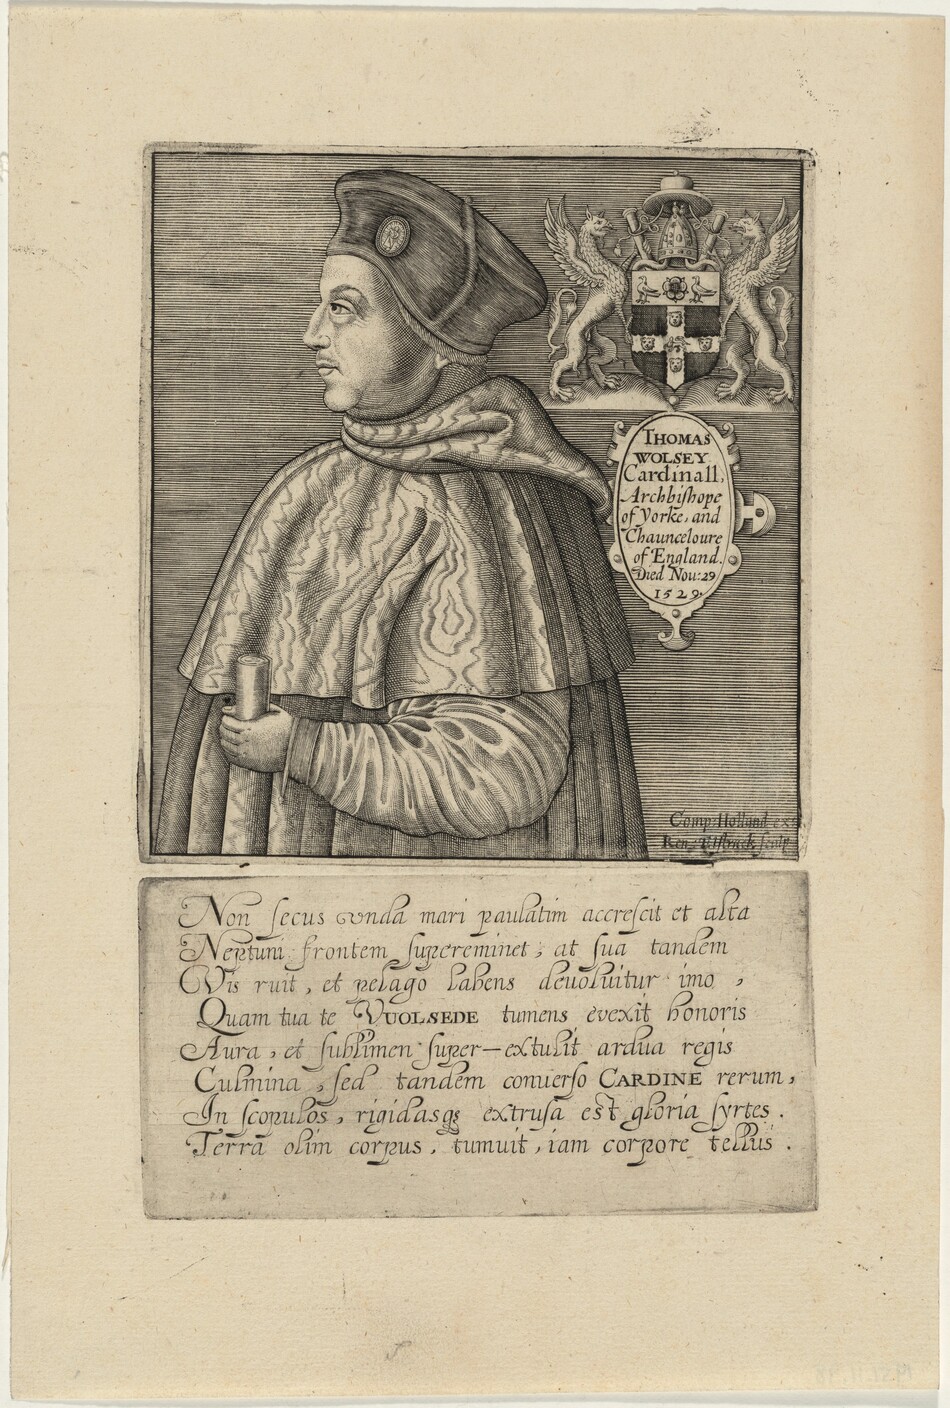 THOMAS
WOLSEY
Cardinall,
Archbiſhope
of Yorke, and
Chaunceloure
of England.
Died Nou: 29
1529
Comp: Holland ex
Ren: Elſtrack ſculp
Non ſecus vnda mari paulatim accreſcit et alta
Neptuni frontem ſupereminet, at ſua tandem
Vis ruit, et pelago labens deuoluitur imo,
Quam tua te VUOLSEDE tumens evexit honoris
Aura, et ſublimen ſuper-extulit ardua regis
Culmina, ſed tandem conuerſo CARDINE rerum,
In scopulos, rigidasq3 extruſa est gloria ſyrtes.
Terra olim corpus, tumuit, iam corpore tellus.